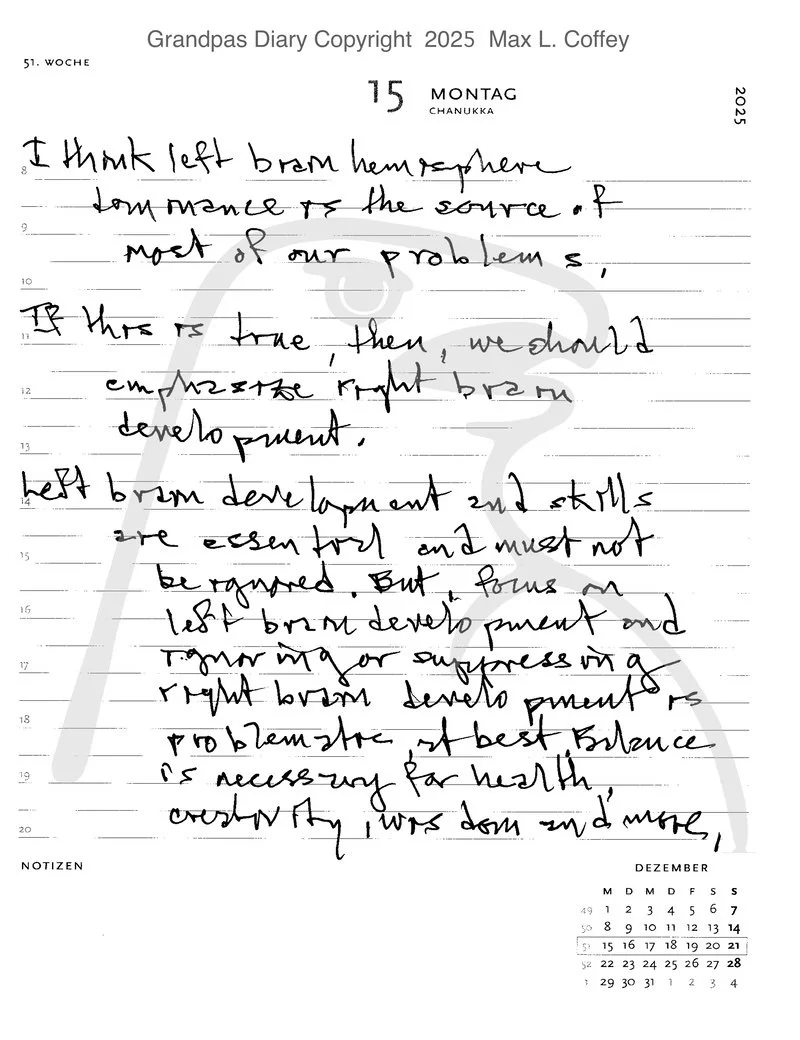 Grandpas Diary Copyright 2025 Max L. Coffey
51. WOCHE
15 MONTAG
CHANUKKA
2025
8
I think left brain hemisphere
dominance is the source of
9
most of our problems,
10
If this is true, then, we should
11
12
emphasize right brain
development.
13
Left brain development and skills
14
are essential and must not
15
be ignored. But, focus on
16
left brain development and
17
ignoring or suppressing
right brain development is
18
problematic, at best. Balance
19
is necessary for health,
creativity, wisdom and more,
20
NOTIZEN
DEZEMBER
M D M D F S S
49 1 2 3 4 5 6 7
50 8 9 10 11 12 13 14
51 15 16 17 18 19 20 21
52 22 23 24 25 26 27 28
1 29 30 31 1 2 3 4